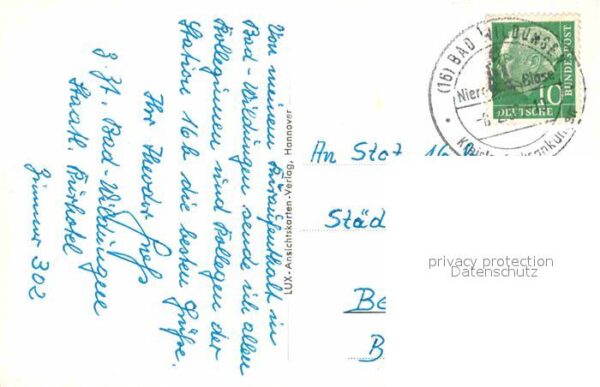 Von meinem Kuraufenthalt in
Bad-Wildungen sende ich allen
Kolleginnen und Kollegen der
Station 16b die besten Grüße.
Ihr Theodor
z. Zt. Bad-Wildungen
Staatl. Kurhotel
Zimmer 302
LUX-Ansichtskarten-Verlag, Hannover
(16) BAD WILDUNGEN
Blase
10
DEUTSCHE
BUNDESPOST
An Stat. 16
Städ
Be
B
privacy protection
Datenschutz